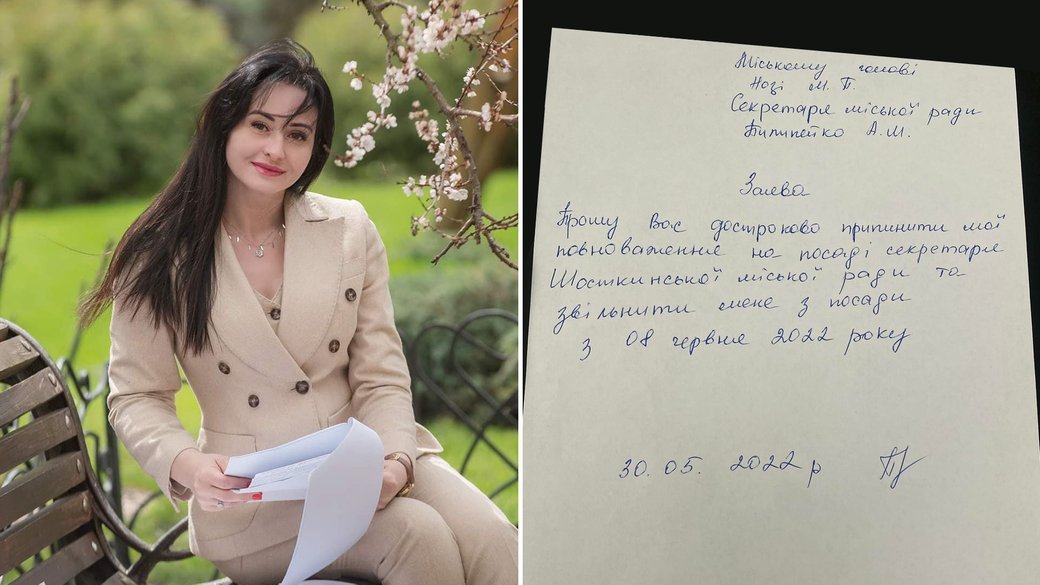 Міському голові
Нозі М. П.
Секретаря міської ради
Пилипейко А.М.
Заява
Прошу Вас достроково припинити мої
повноваження на посаді секретаря
Шосткинської міської ради та
звільнити мене з посади
з 08 червня 2022 року
30.05. 2022 р